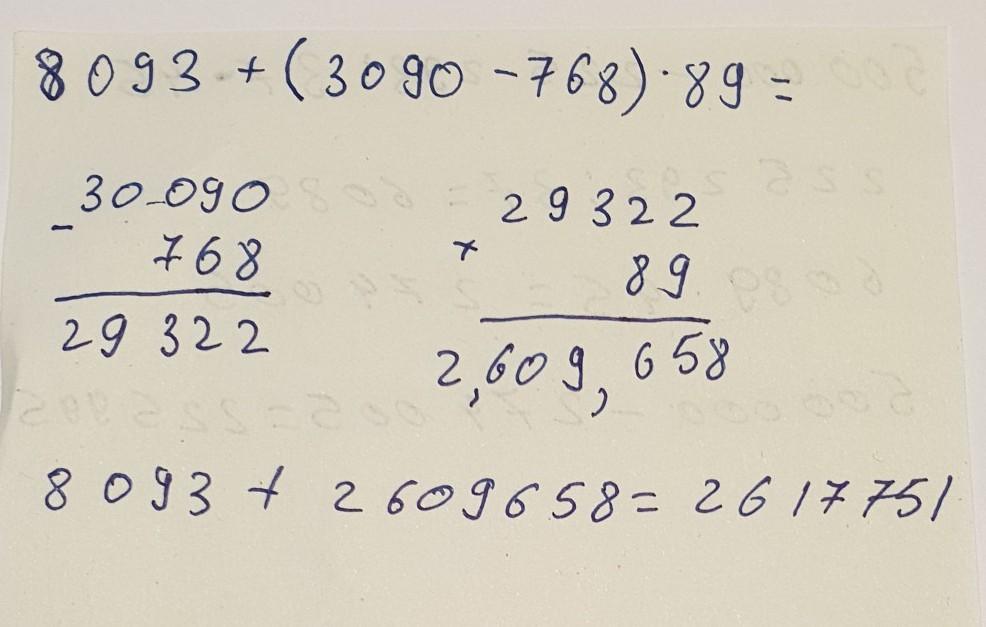 8093 + (3090 - 768) · 89 =
30 090 29322
- 768 × 89
29 322 2,609,658
8 093 + 2609658 = 2617751